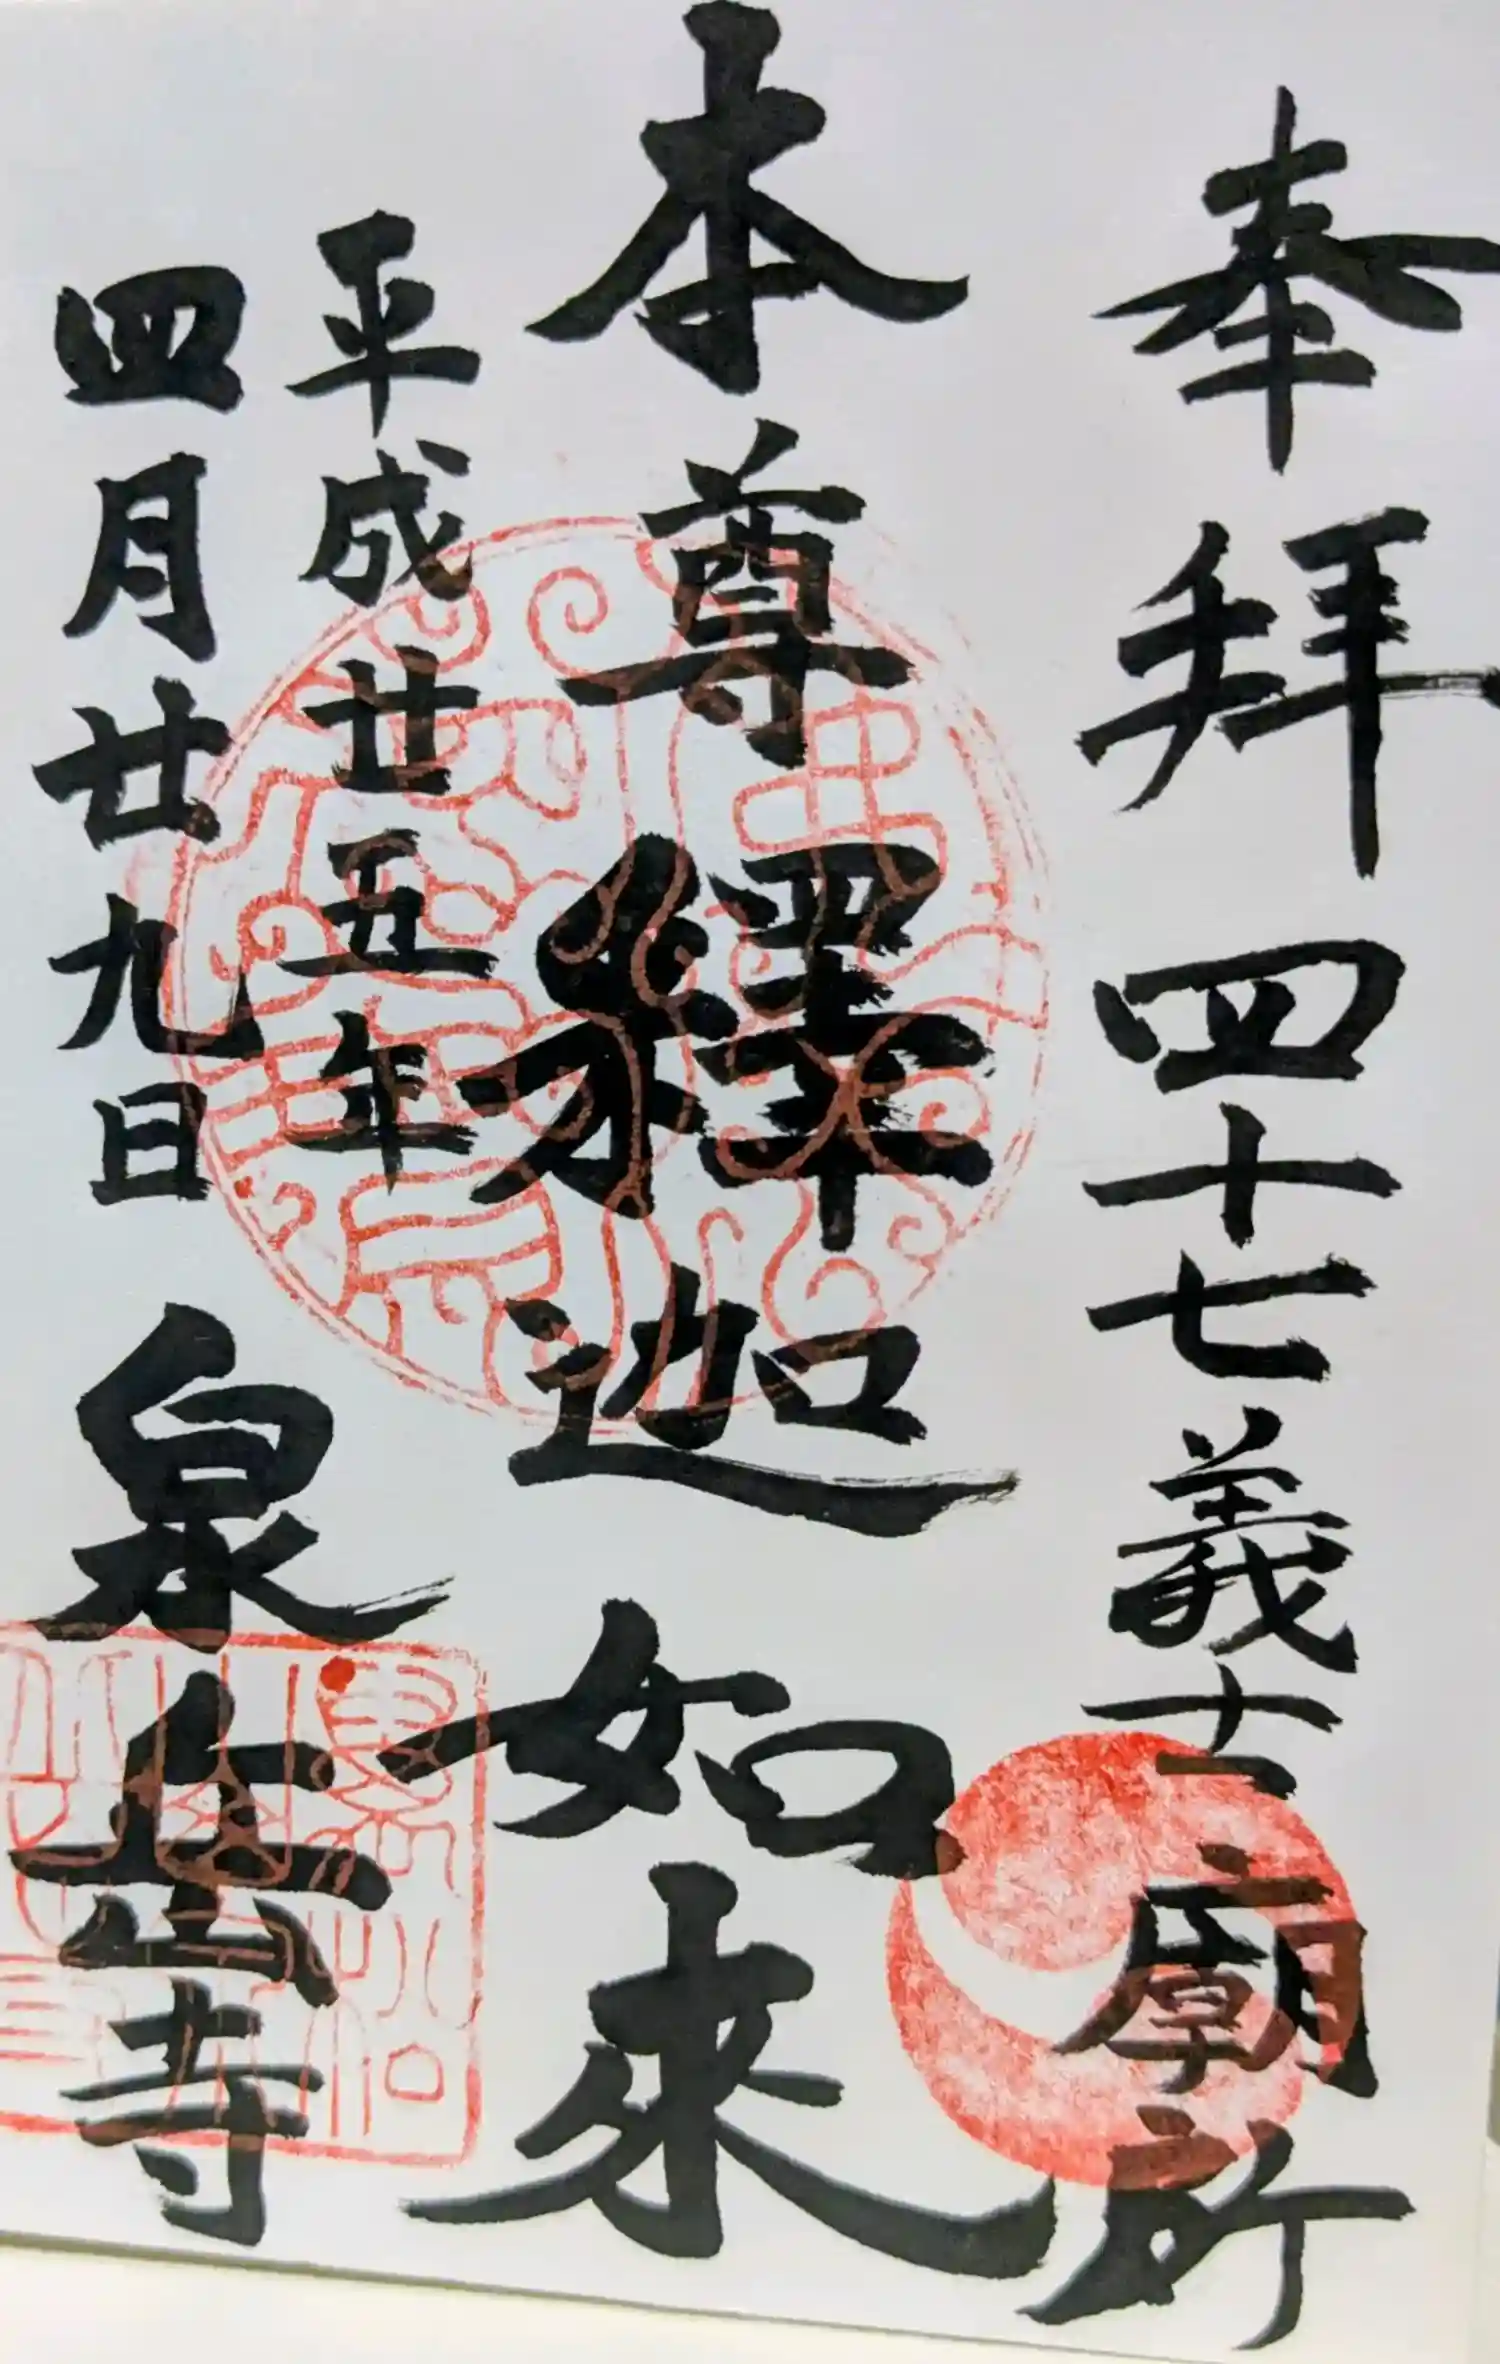 奉拝 四十七義士廟所
本尊 釋迦如来
平成廿五年
四月廿九日 泉岳寺